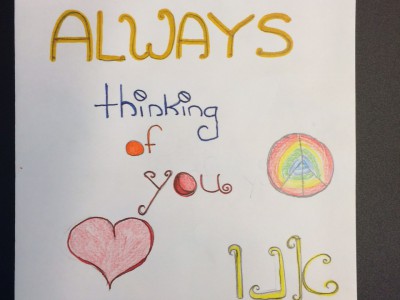 ALWAYS
thinking
of
you